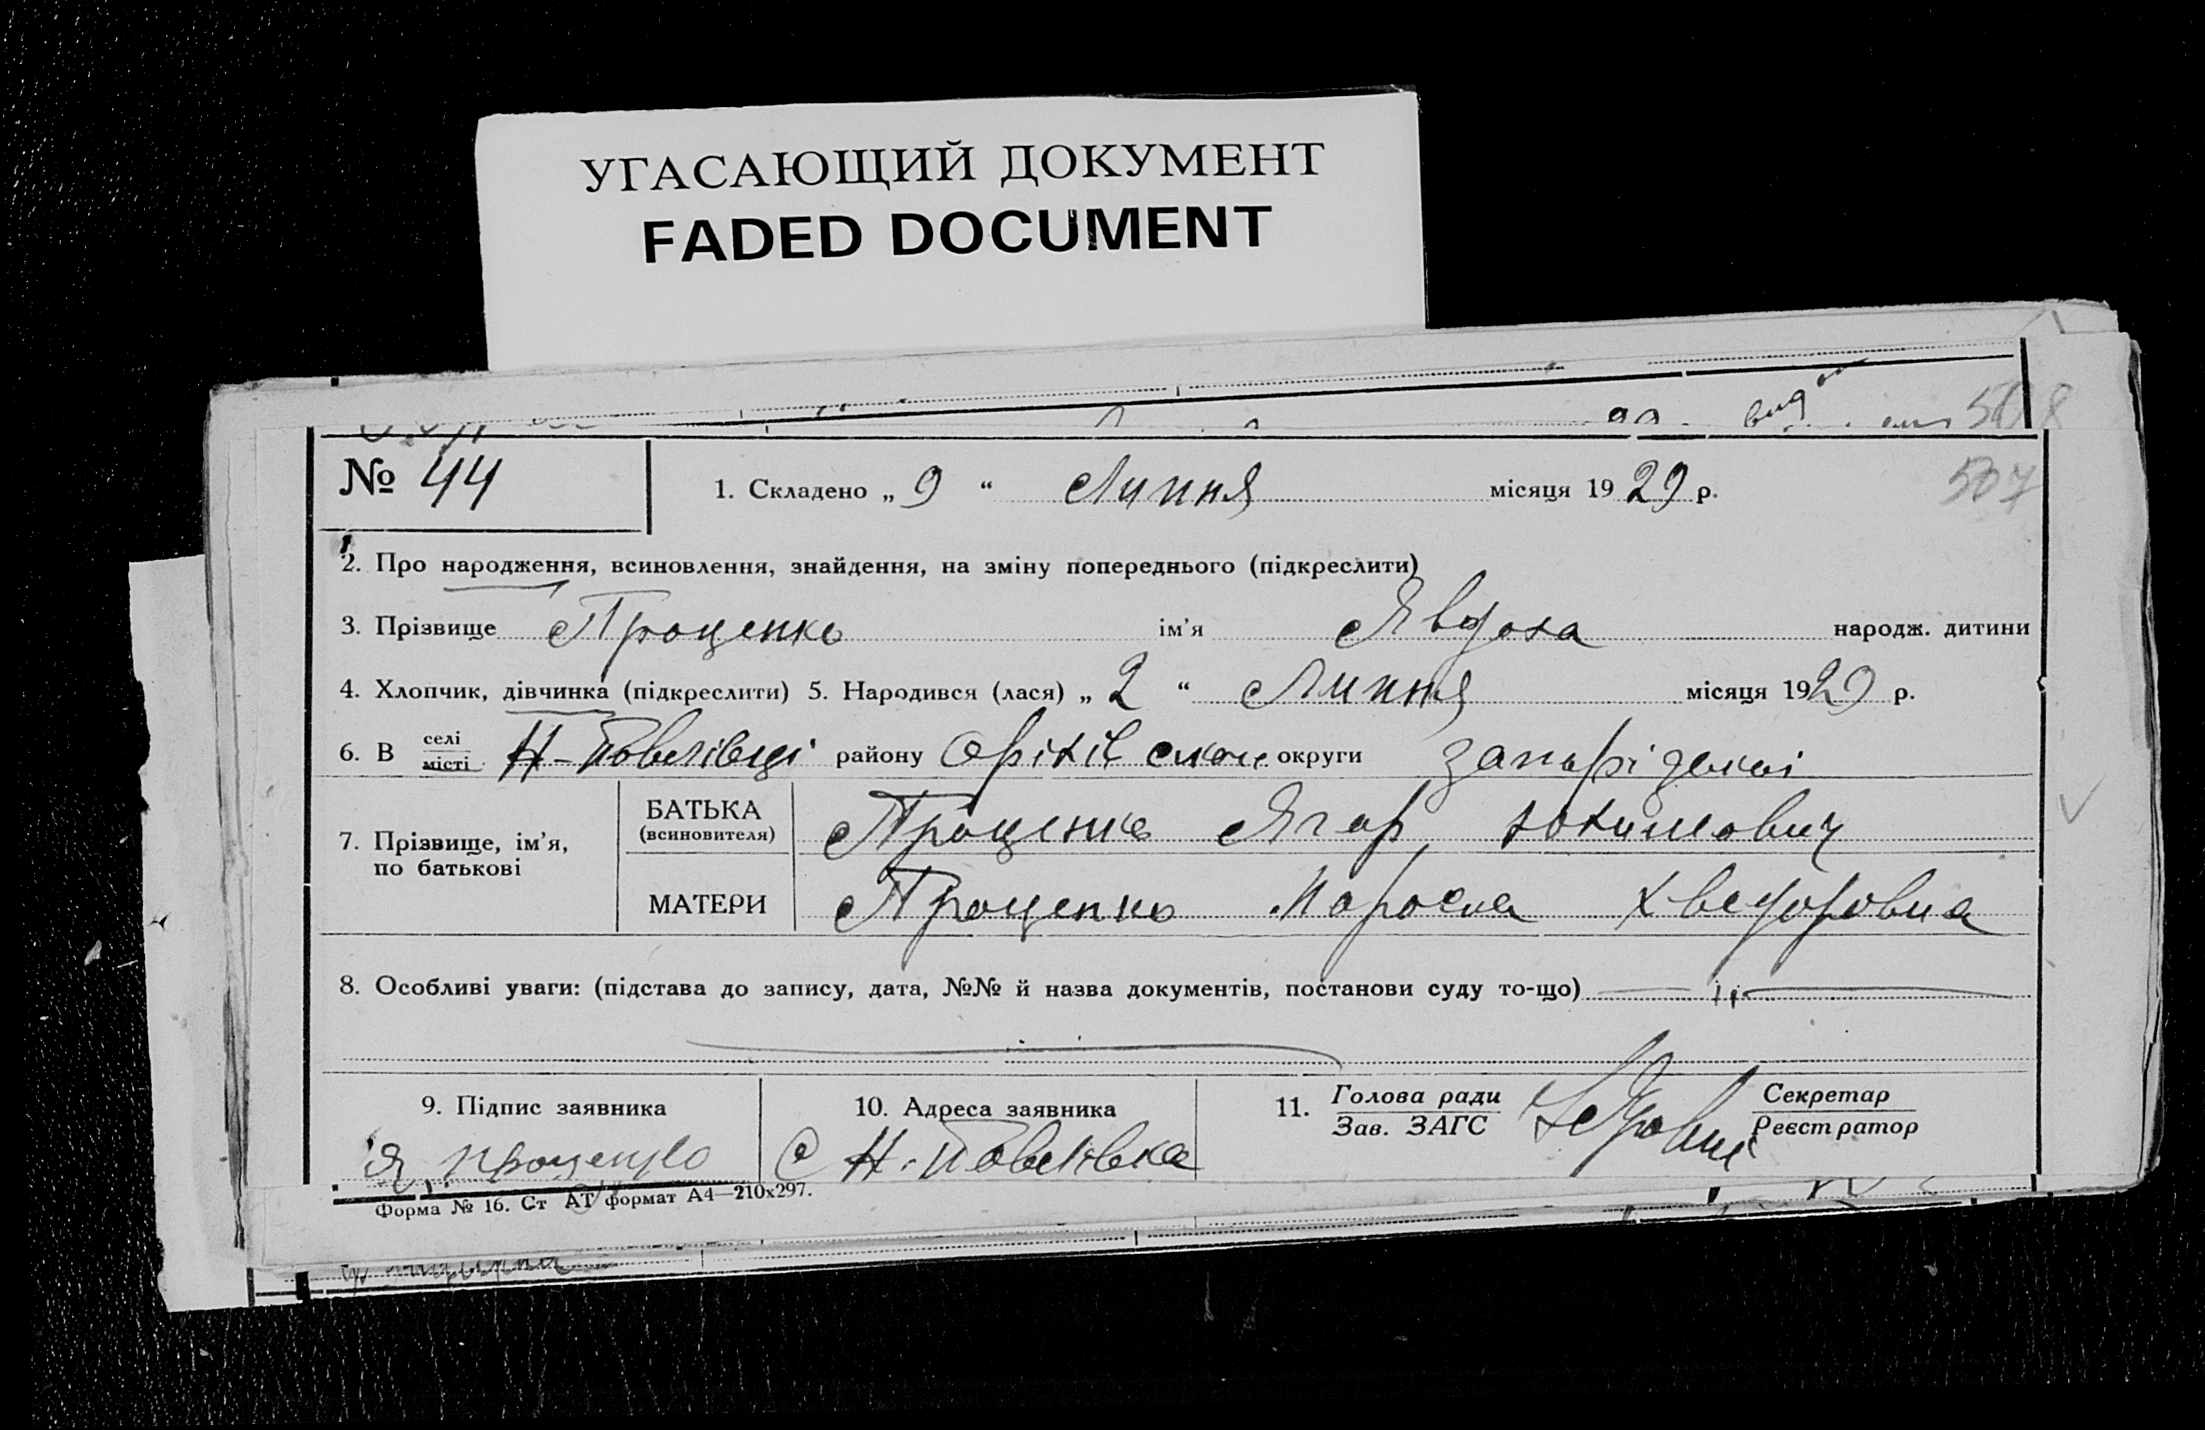 УГАСАЮЩИЙ ДОКУМЕНТ
FADED DOCUMENT
508
№ 44
1. Складено „ 9 “ Липня місяця 1929 р.
507
2. Про народження, всиновлення, знайдення, на зміну попереднього (підкреслити)
3. Прізвище Проценко ім’я Явдоха народж. дитини
4. Хлопчик, дівчинка (підкреслити) 5. Народився (лася) „ 2 “ Липня місяця 1929 р.
6. В селі місті Н-Павлівці району Оріхівськ округи Запорізької
7. Прізвище, ім’я, по батькові
БАТЬКА (всиновителя) Проценко Ягор Юхимович
МАТЕРИ Проценко Хведоровна
8. Особливі уваги: (підстава до запису, дата, №№ й назва документів, постанови суду то-що)
9. Підпис заявника
10. Адреса заявника
11. Голова ради Зав. ЗАГС
Секретар Реєстратор
Я. Проценко
с Н-Павлівка
Форма № 16. Ст АТ формат А4—210х297.